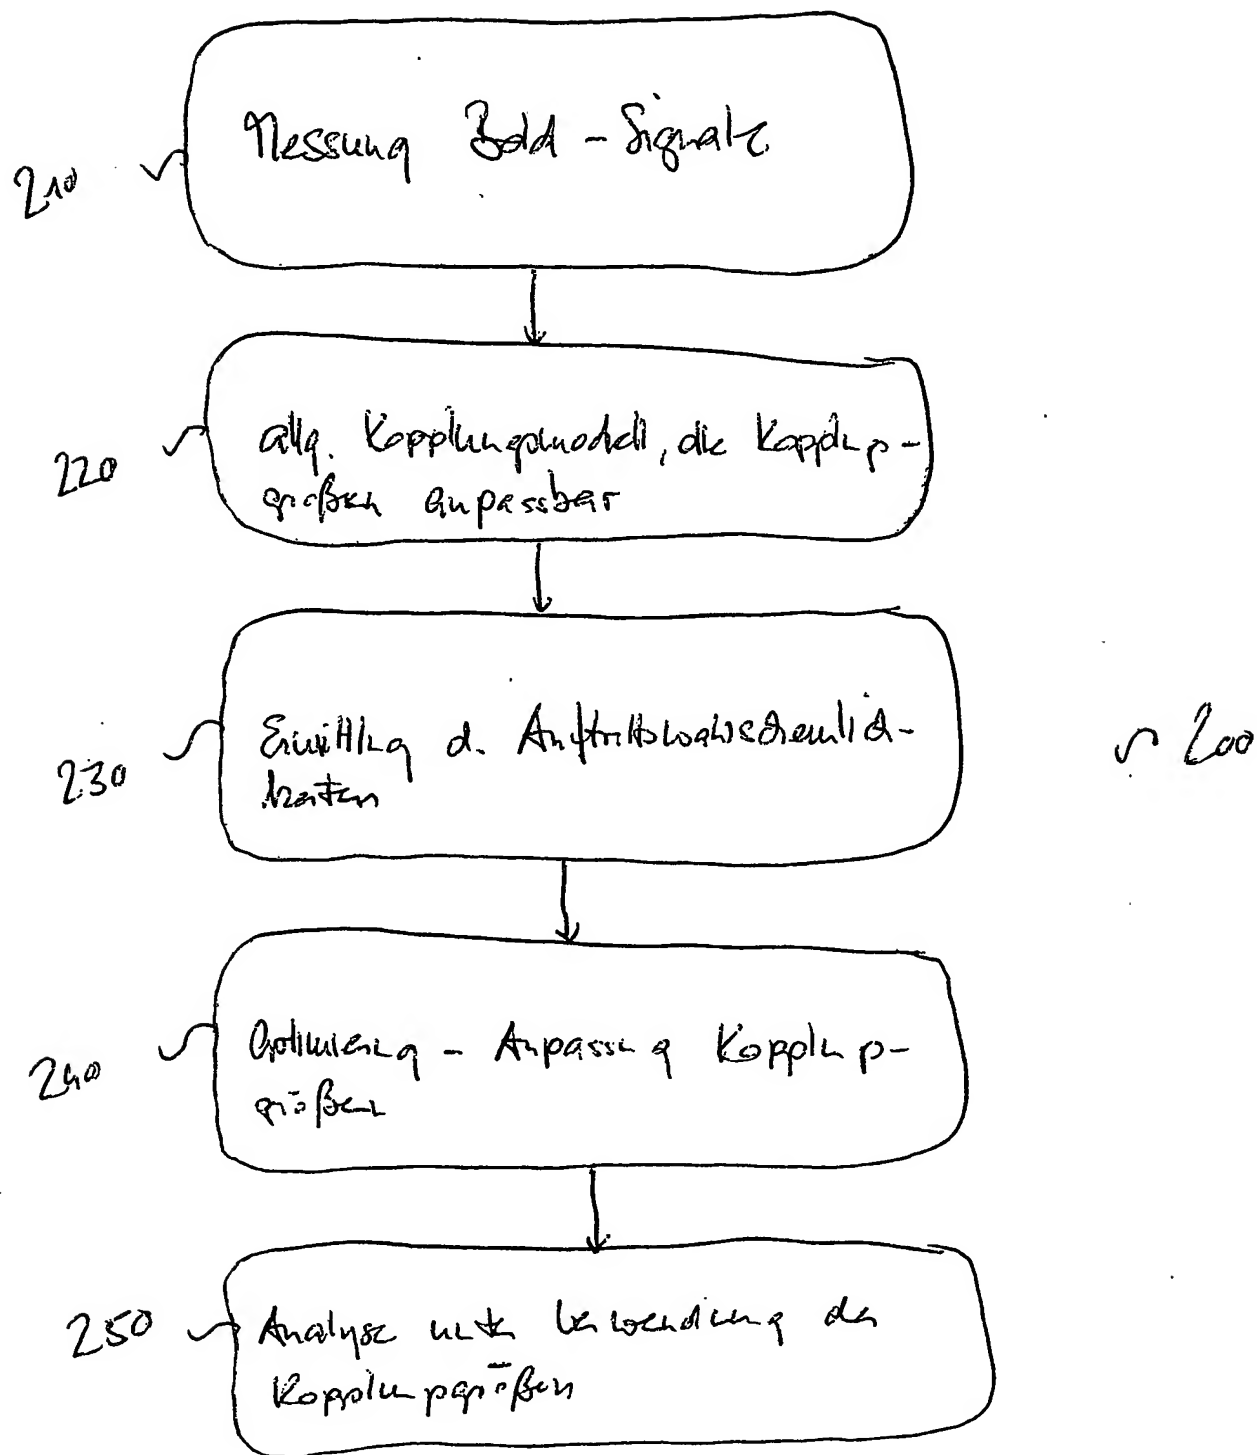 Messung Bold-Signale
210
allg. Kopplungsmodell, die Kopplungs-
größen anpassbar
220
Ermittlung d. Auftrittswahrscheinlich-
keiten
230
200
Optimierung - Anpassung Kopplungs-
größen
240
250
Analyse unter Verwendung der
Kopplungsgrößen